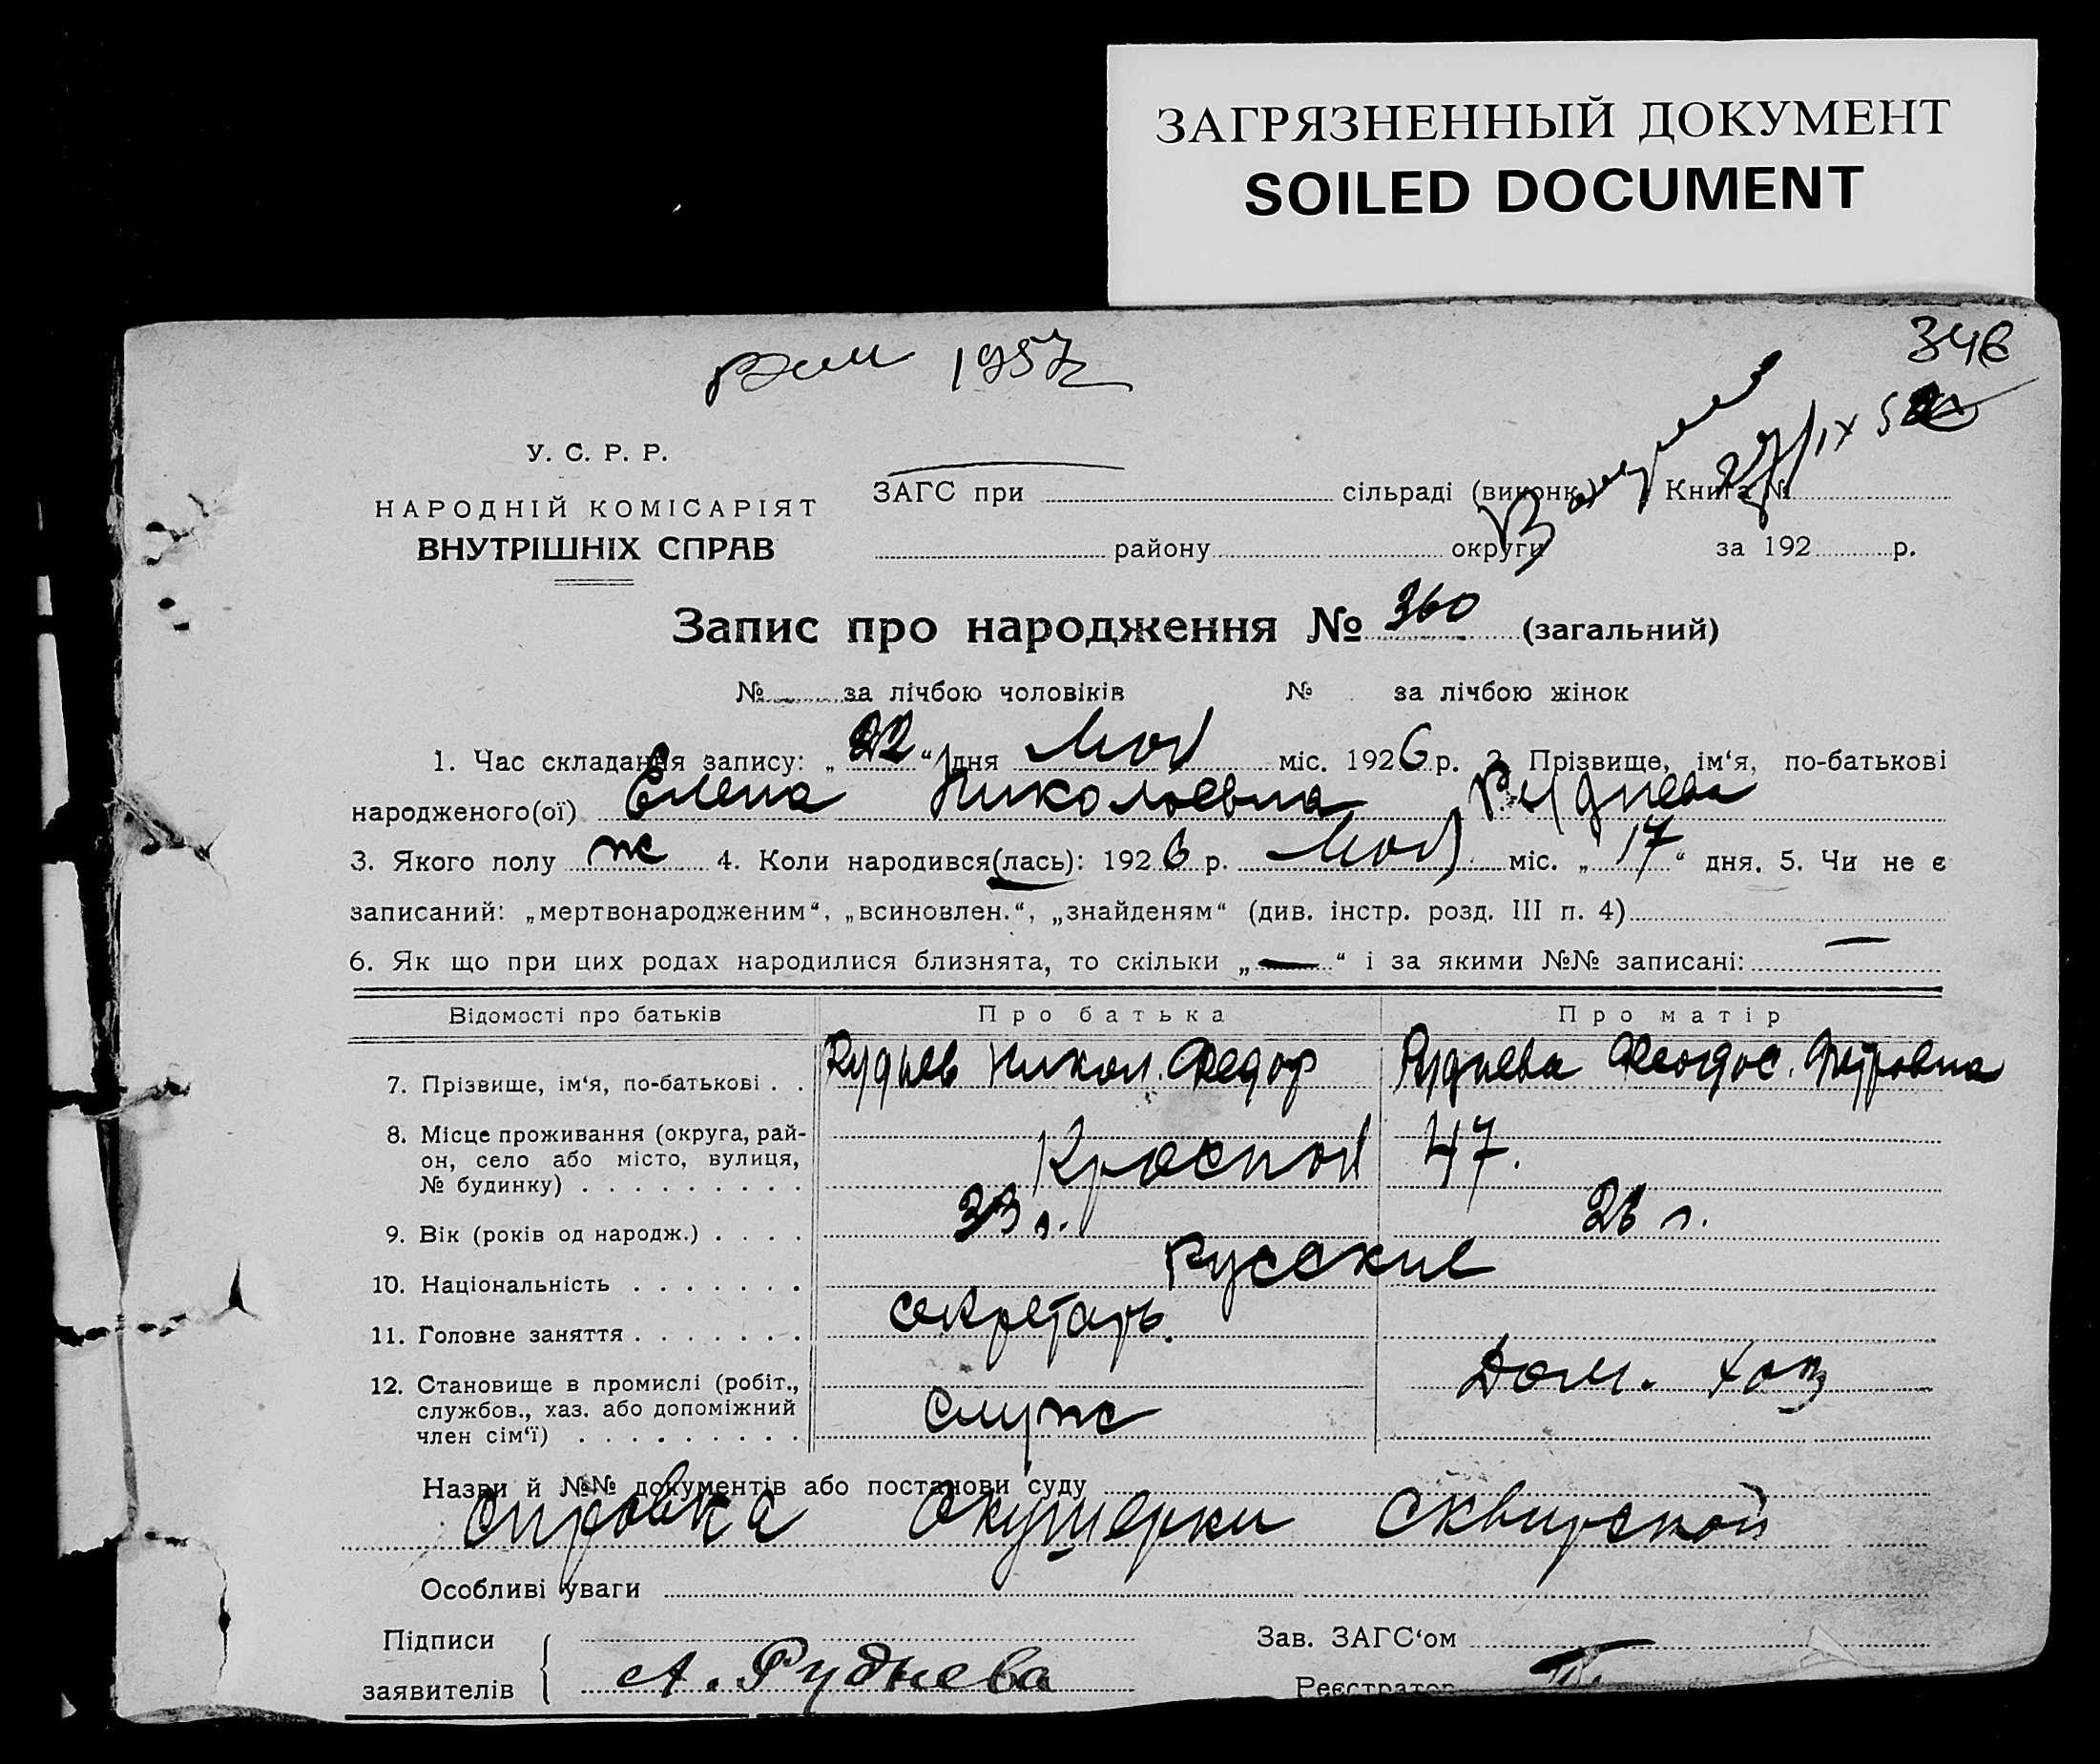 ЗАГРЯЗНЕННЫЙ ДОКУМЕНТ
SOILED DOCUMENT
346
1957
27/IX 5
У. С. Р. Р.
НАРОДНІЙ КОМІСАРІЯТ
ВНУТРІШНІХ СПРАВ
ЗАГС при сільраді (виконк.) Книга №
району округи за 192 р.
Запис про народження № 360 (загальний)
№ за лічбою чоловіків № за лічбою жінок
1. Час складання запису: „22“ дня мая міс. 1926 р. 2. Прізвище, ім‘я, по-батькові
народженого(ої) Елена Николаевна Руднева
3. Якого полу ж 4. Коли народився(лась): 1926 р. мая міс. „17“ дня. 5. Чи не є
записаний: „мертвонародженим“, „всиновлен.“, „знайденям“ (див. інстр. розд. III п. 4)
6. Як що при цих родах народилися близнята, то скільки „—“ і за якими №№ записані: —
Відомості про батьків Про батька Про матір
7. Прізвище, ім‘я, по-батькові . . Руднев Никол. Федор Руднева Феодос. Петровна
8. Місце проживання (округа, рай-
он, село або місто, вулиця, Красная 47.
№ будинку) . . . . . . . . .
9. Вік (років од народж.) . . . . 33 л. 26 л.
10. Національність . . . . . . . Русские
11. Головне заняття . . . . . . . секретарь
12. Становище в промислі (робіт., Дом. хоз
службов., хаз. або допоміжний служ
член сім‘ї) . . . . . . . . .
Назви й №№ документів або постанови суду
справка акушерки Сквирской
Особливі уваги
Підписи Зав. ЗАГС‘ом
заявителів А. Руднева Реєстратор